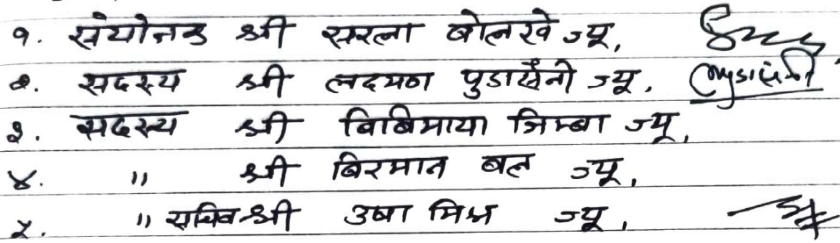 १. संयोजक श्री सरला बोलखे ज्यू,
२. सदस्य श्री लक्ष्मण पुडासैनी ज्यू, पुडासैनी
३. सदस्य श्री बिबिमाया जिम्बा ज्यू,
४. " श्री बिरमान बल ज्यू,
५. " सचिव श्री उषा मिश्र ज्यू,